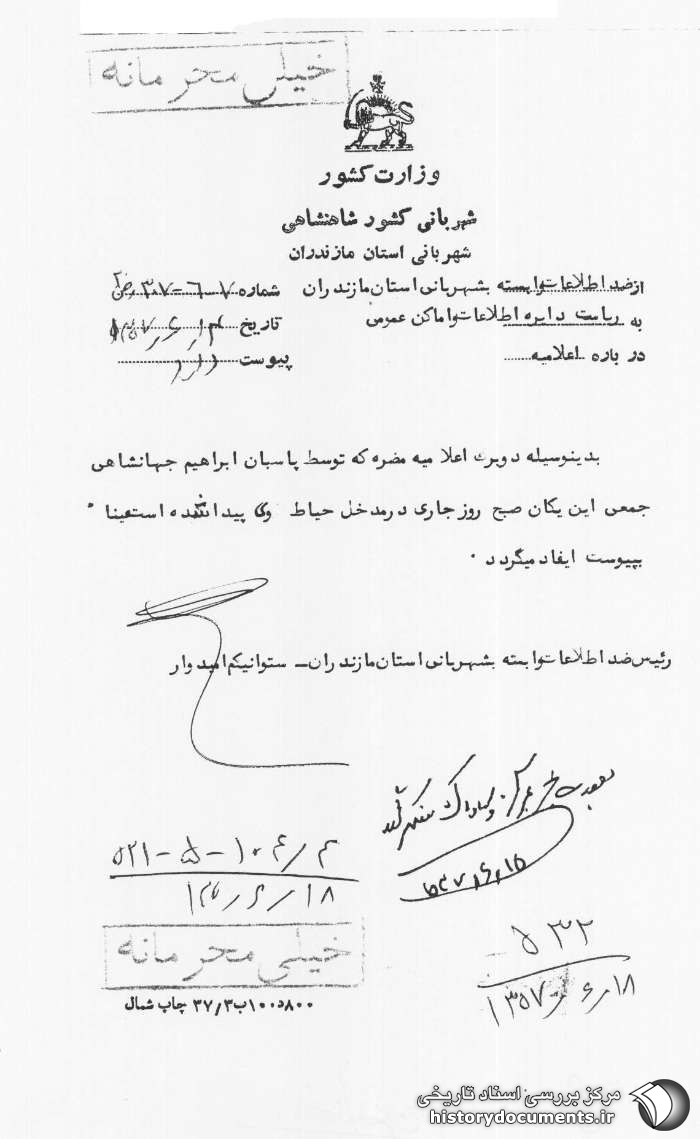 خیلی محرمانه
وزارت کشور
شهربانی کشور شاهنشاهی
شهربانی استان مازندران
از ضد اطلاعات وابسته بشهربانی استان مازندران
شماره ۷-۶-۳۰۷
به ریاست دایره اطلاعات و اماکن عمومی
تاریخ ۱۳۵۷/۶/۱۴
در باره اعلامیه
پیوست دارد
بدینوسیله دو برگ اعلامیه مضره که توسط پاسبان ابراهیم جهانشاهی
جمعی این یکان صبح روز جاری در مدخل حیاط وی پیدا شده است عینا "
بپیوست ایفاد میگردد .
رئیس ضد اطلاعات وابسته بشهربانی استان مازندران ــ ستوانیکم امیدوار
۵۲۱-۵-۱۰۶/۴
۱۸/۶/
۵۳۲
۱۳۵۷/۶/۱۸
خیلی محرمانه
۸۰۰د۱۰۰ب۳۷/۳ چاپ شمال
مرکز بررسی اسناد تاریخی
historydocuments.ir